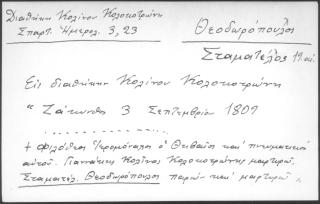 Διαθήκη Κολίνου Κολοκοτρώνη
Σπαρτ. Ἡμερολ. 3, 23
Θεοδωρόπουλος
Σταματέλος 19 αἰ.
Εἰς διαθήκην Κολίνου Κολοκοτρώνη
“ Ζάκυνθος 3 Σεπτεμβρίου 1807
..................
+ Φιλόθεος Ἱερομόναχος ὁ Θηβαῖος καὶ πνευματικὸς
αὐτοῦ. Γιαννάκης Κολίνος Κολοκοτρώνης μαρτυρῶ.
Σταματέλ. Θεοδωρόπουλος παρὼν καὶ μαρτυρῶ „